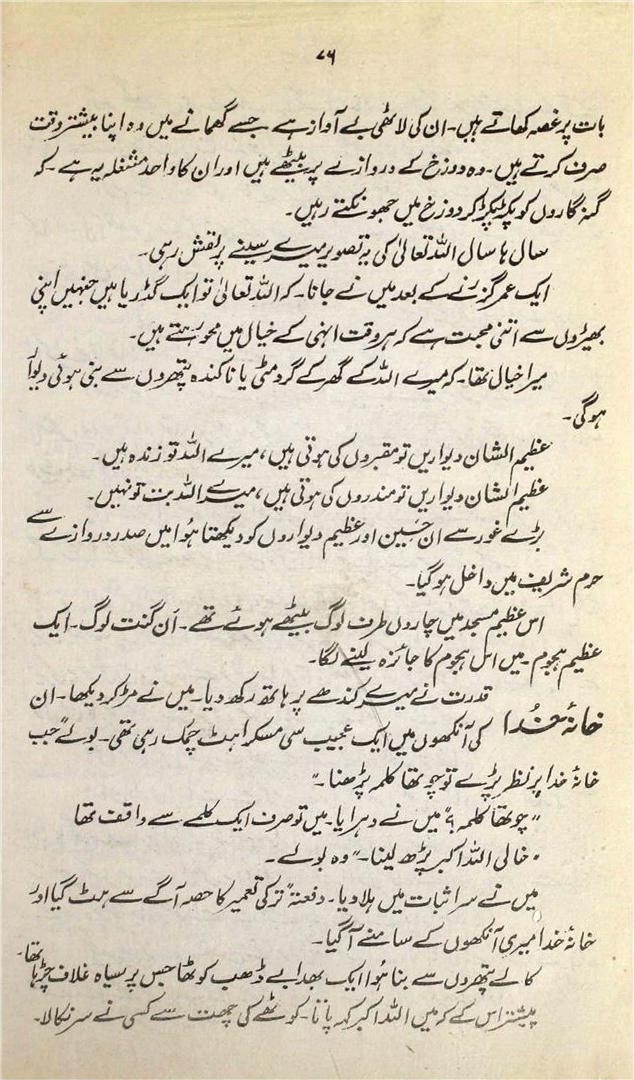 ۷۶
بات پر غصہ کھاتے ہیں۔ ان کی لاٹھی بے آواز ہے۔ جسے گھمانے میں وہ اپنا بیشتر وقت
صرف کرتے ہیں۔ وہ دوزخ کے دروازے پر بیٹھے ہیں اور ان کا واحد مشغلہ یہ ہے۔ کہ
گنہگاروں کو پکڑ پکڑ کر دوزخ میں جھونکتے رہیں۔
سال ہا سال اللہ تعالیٰ کی یہ تصویر میرے سینے پر نقش رہی۔
ایک عمر گزرنے کے بعد میں نے جانا۔ کہ اللہ تعالیٰ تو ایک گڈریا ہیں جنہیں اپنی
بھیڑوں سے اتنی محبت ہے کہ ہر وقت انہی کے خیال میں محو رہتے ہیں۔
میرا خیال تھا۔ کہ میرے اللہ کے گھر کے گرد مٹی یا ناکندہ پتھروں سے بنی ہوئی دیوار
ہوگی۔
عظیم الشان دیواریں تو مقبروں کی ہوتی ہیں، میرے اللہ تو زندہ ہیں۔
عظیم الشان دیواریں تو مندروں کی ہوتی ہیں، میرے اللہ بت تو نہیں۔
بڑے غور سے ان حسین اور عظیم دیواروں کو دیکھتا ہوا میں صدر دروازے سے
حرم شریف میں داخل ہو گیا۔
اس عظیم مسجد میں چاروں طرف لوگ بیٹھے ہوئے تھے۔ اَن گنت لوگ۔ ایک
عظیم ہجوم۔ میں اس ہجوم کا جائزہ لینے لگا۔
قدرت نے میرے کندھے پر ہاتھ رکھ دیا۔ میں نے مڑ کر دیکھا۔ ان
خانۂ خُدا
کی آنکھوں میں ایک عجیب سی مسکراہٹ چمک رہی تھی۔ بولے "جب
خانۂ خدا پر نظر پڑے تو چوتھا کلمہ پڑھنا۔"
"چوتھا کلمہ؟" میں نے دہرایا۔ میں تو صرف ایک کلمے سے واقف تھا
"خالی اللہ اکبر پڑھ لینا۔" وہ بولے۔
میں نے سر اثبات میں ہلا دیا۔ دفعتہً ترکی تعمیر کا حصہ آگے سے ہٹ گیا اور
خانۂ خدا میری آنکھوں کے سامنے آگیا۔
کالے پتھروں سے بنا ہُوا ایک بھدا بے ڈھب کوٹھا جس پر سیاہ غلاف چڑھا تھا۔
پیشتر اس کے کہ میں اللہ اکبر کہہ پاتا۔ کوٹھے کی چھت سے کسی نے سر نکالا۔